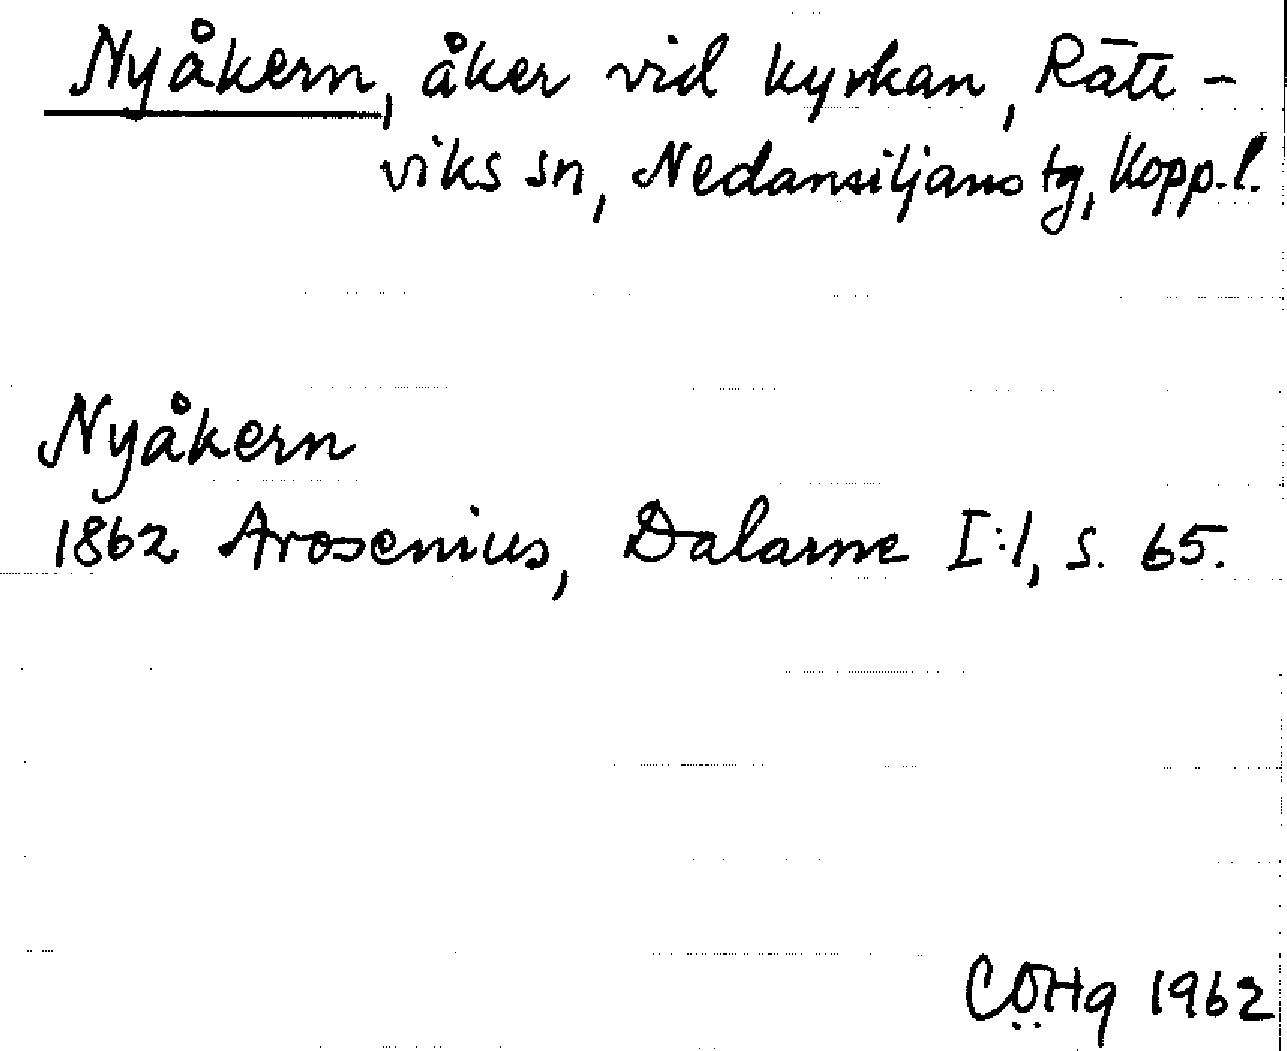 Nyåkern, åker vid kyrkan, Rätt-
viks sn, Nedansiljans tg, Kopp. l.
Nyåkern
1862 Arosenius, Dalarne I:1, s. 65.
CÖHg 1962